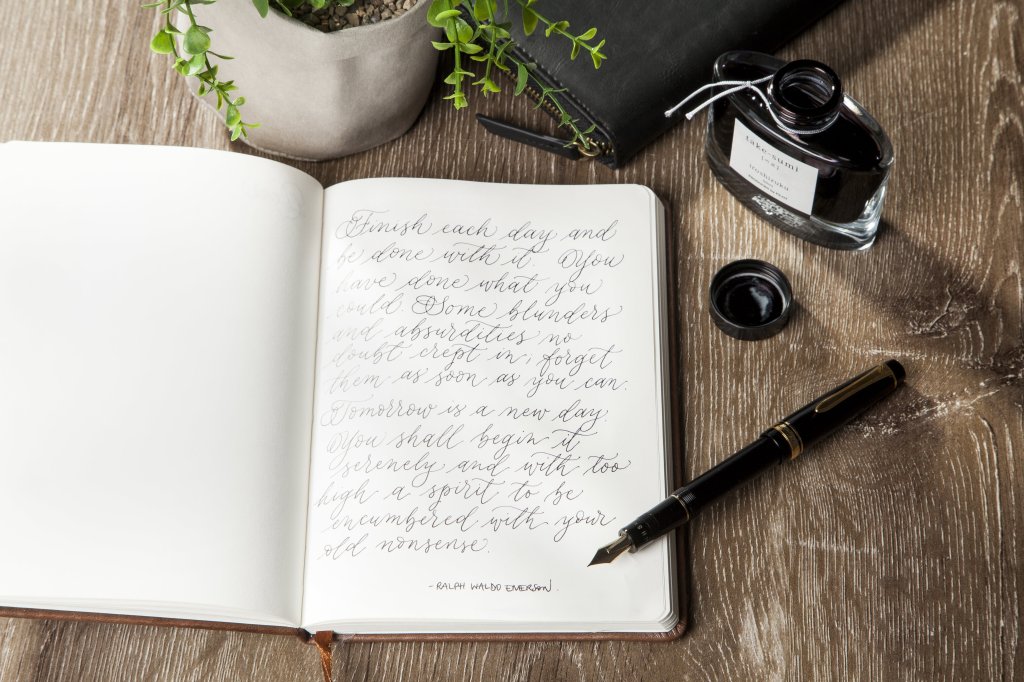 Finish each day and
be done with it. You
have done what you
could. Some blunders
and absurdities no
doubt crept in, forget
them as soon as you can.
Tomorrow is a new day.
You shall begin it
serenely and with too
high a spirit to be
encumbered with your
old nonsense.
- RALPH WALDO EMERSON.
take-sumi
iroshizuku